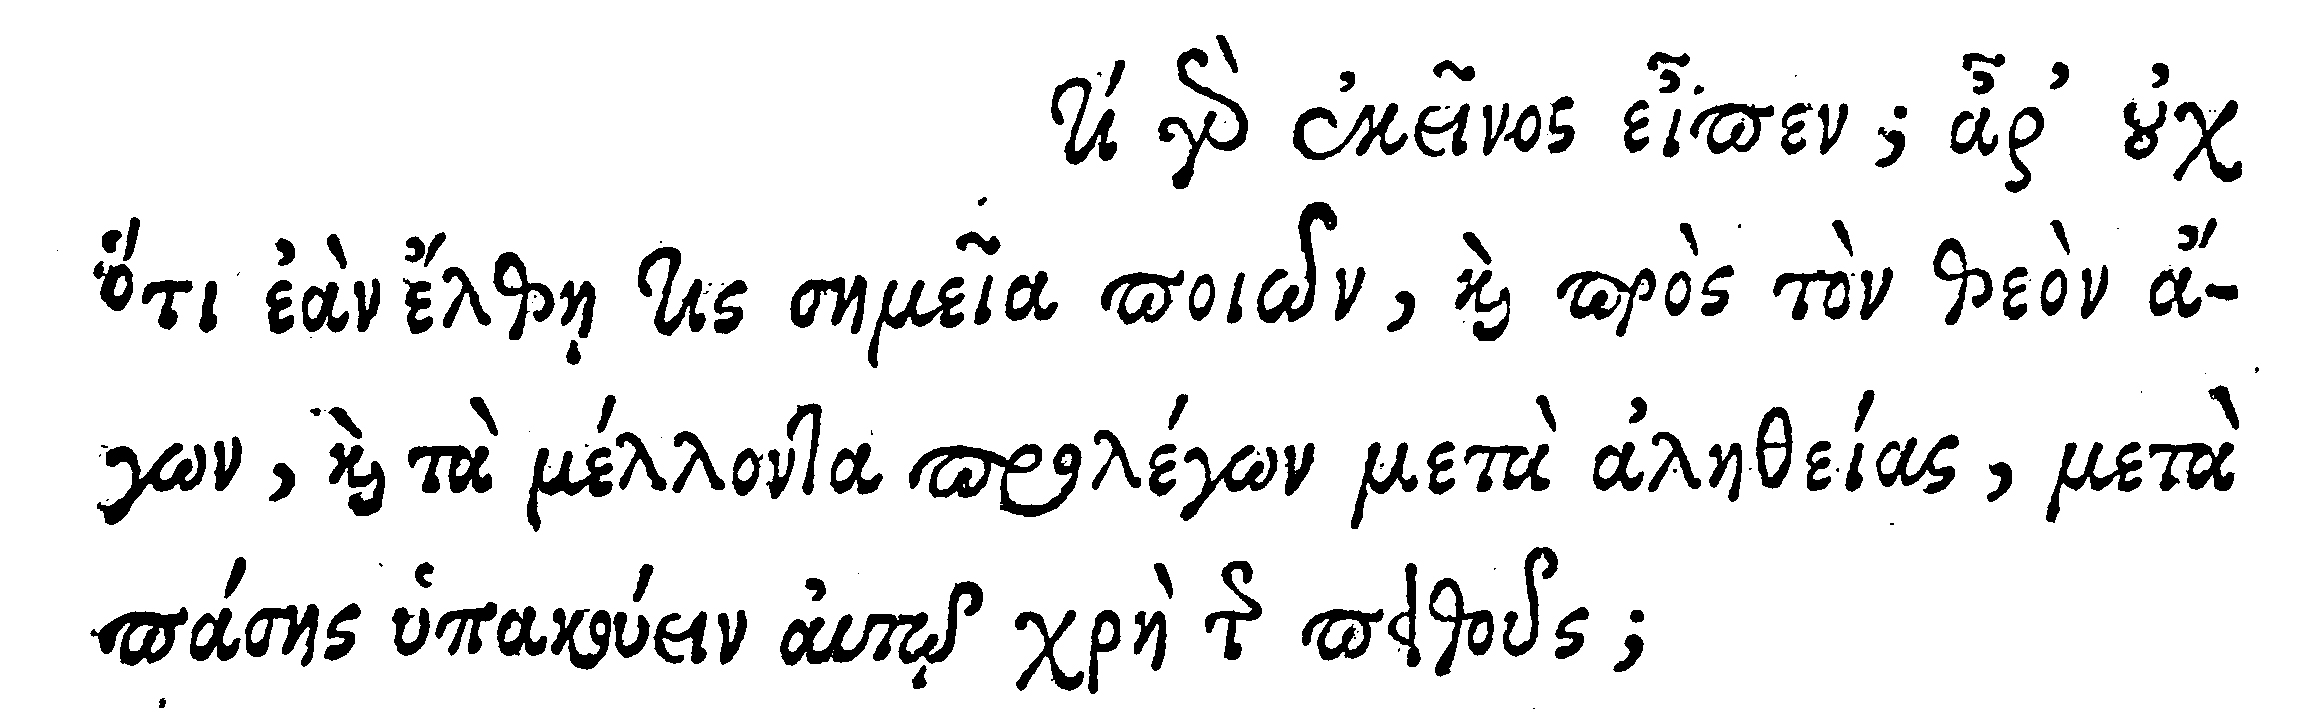 τί γὰρ ἐκεῖνος εἶπεν; ἆρ’ οὐχ
ὅτι ἐὰν ἔλθῃ τις σημεῖα ποιῶν, καὶ πρὸς τὸν θεὸν ἄ-
γων, καὶ τὰ μέλλοντα προλέγων μετὰ ἀληθείας, μετὰ
πάσης ὑπακούειν αὐτῷ χρὴ τῆς πειθοῦς;